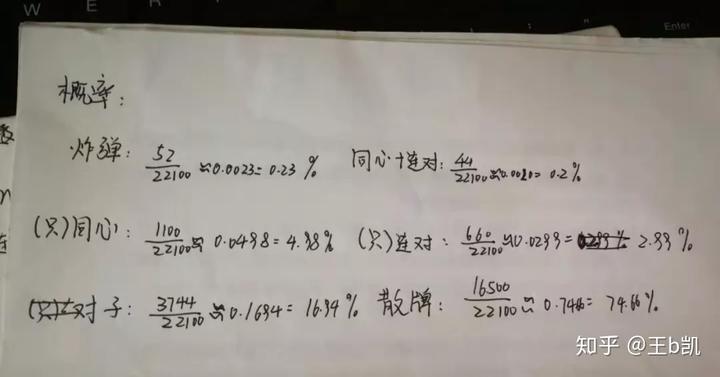 W E R
Enter
概率:
炸弹: 52/22100 ≈0.0023=0.23 % 同心+连对: 44/22100 ≈0.0020= 0.2%
(只)同心: 1100/22100 ≈ 0.0498=4.98% (只)连对: 660/22100 ≈0.0299= 2.99%
对子: 3744/22100 ≈0.1694= 16.94% 散牌: 16500/22100 ≈ 0.7466= 74.66%
知乎 @王b凯